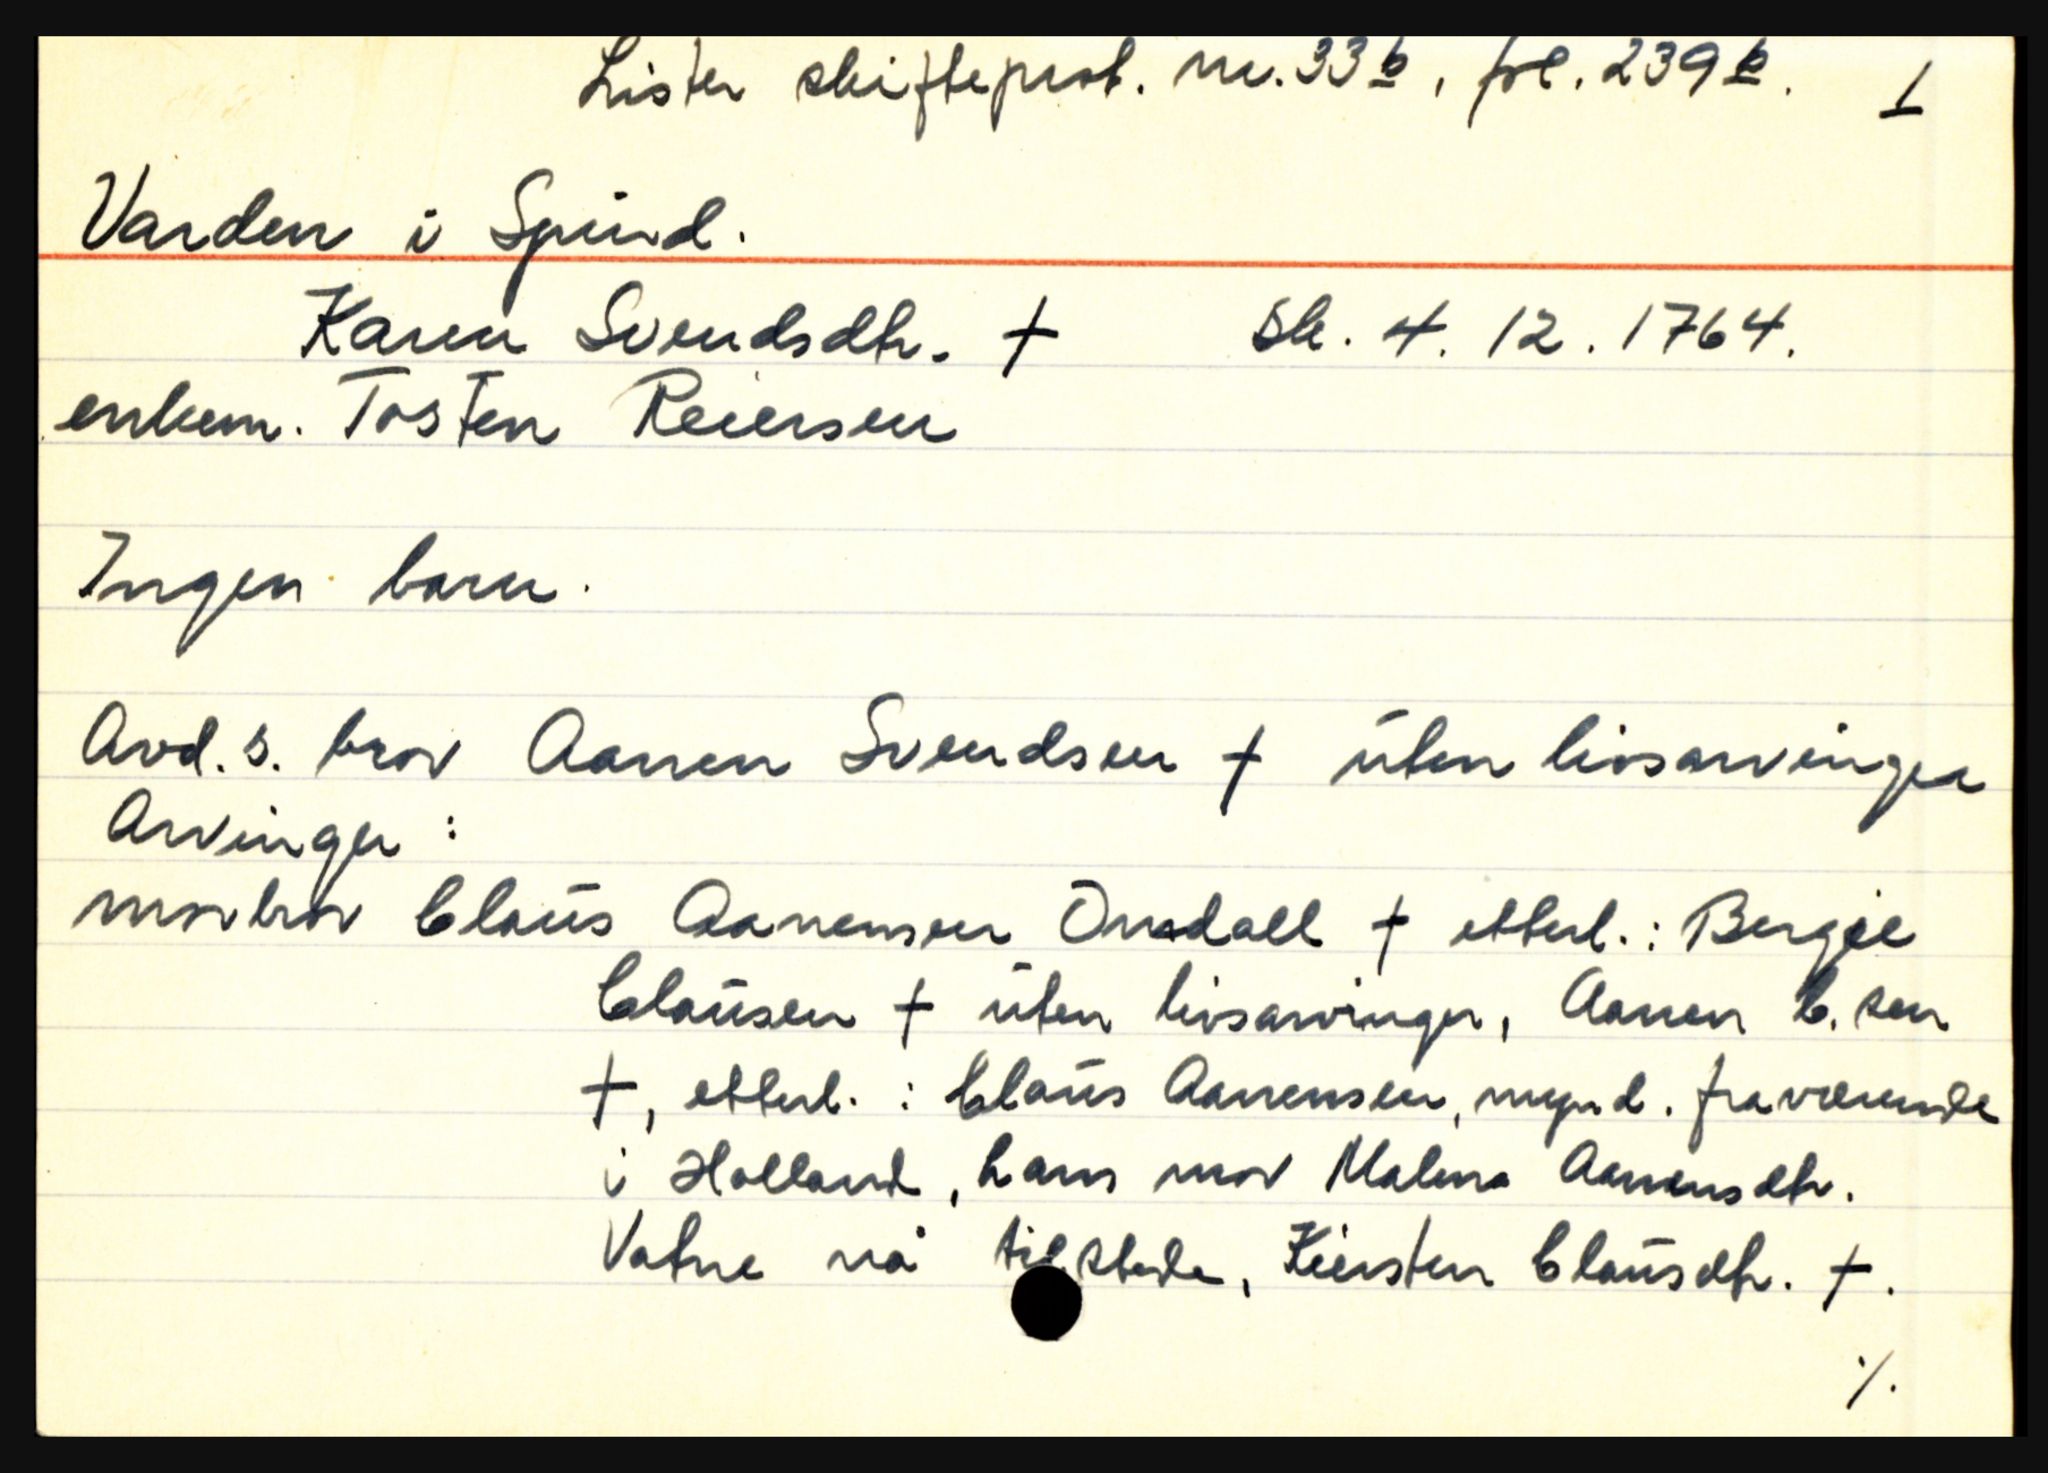 Lister skifteprot. nr. 33b, fol. 239b. 1
Varden i Spind.
Karen Svendsdtr. † Sk. 4. 12. 1764.
enkem. Tosten Reiersen
Ingen barn.
Avd. s. bror Aanen Svendsen † uten livsarvinger
Arvinger :
morbror Claus Aanensen Ørsdall † etterl. : Bergie
Clausen † uten livsarvinger, Aanen C. sen
†, etterl. : Claus Aanensen, mynd. fraværende
i Holland, hans mor Malena Aanensdtr.
Vatne nå tilstede, Kiersten Clausdtr. †.
./.